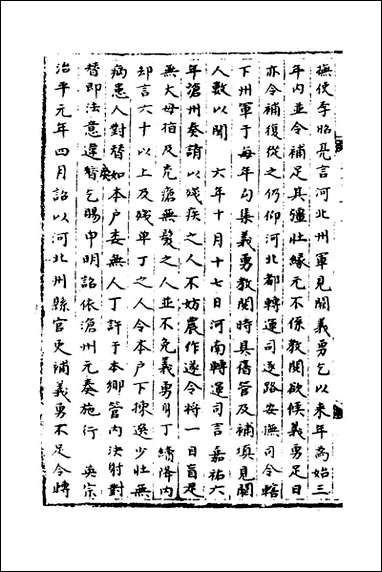 撫使李昭亮言河北州軍見闕義勇乞以来年為始三
年內並令補足其彊壯緣元不係教閱欲候義勇足日
亦令補復從之仍仰河北都轉運司逐路安撫司令轄
下州軍于每年勾集義勇教閱時具舊管及補項見闕
人數以聞　六年十月十七日河南轉運司言嘉祐六
年滄州奏請以殘疾之人不妨農作遂令將一目盲足
無大母指及禿瘡無髮之人並不免義勇身丁續降內
却言六十以上及殘单丁之人令本戶下揀選少壯無
病患人對替如本戶委無人丁許于本鄉管內決射對
替即法意違礙乞賜申明詔依滄州元奏施行　英宗
治平元年四月詔以河北州縣官吏補義勇不足令轉